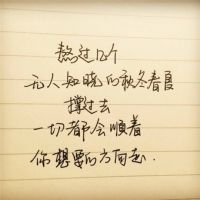 熬过12个
无人知晓的秋冬春夏
撑过去
一切都会顺着
你想要的方向走.